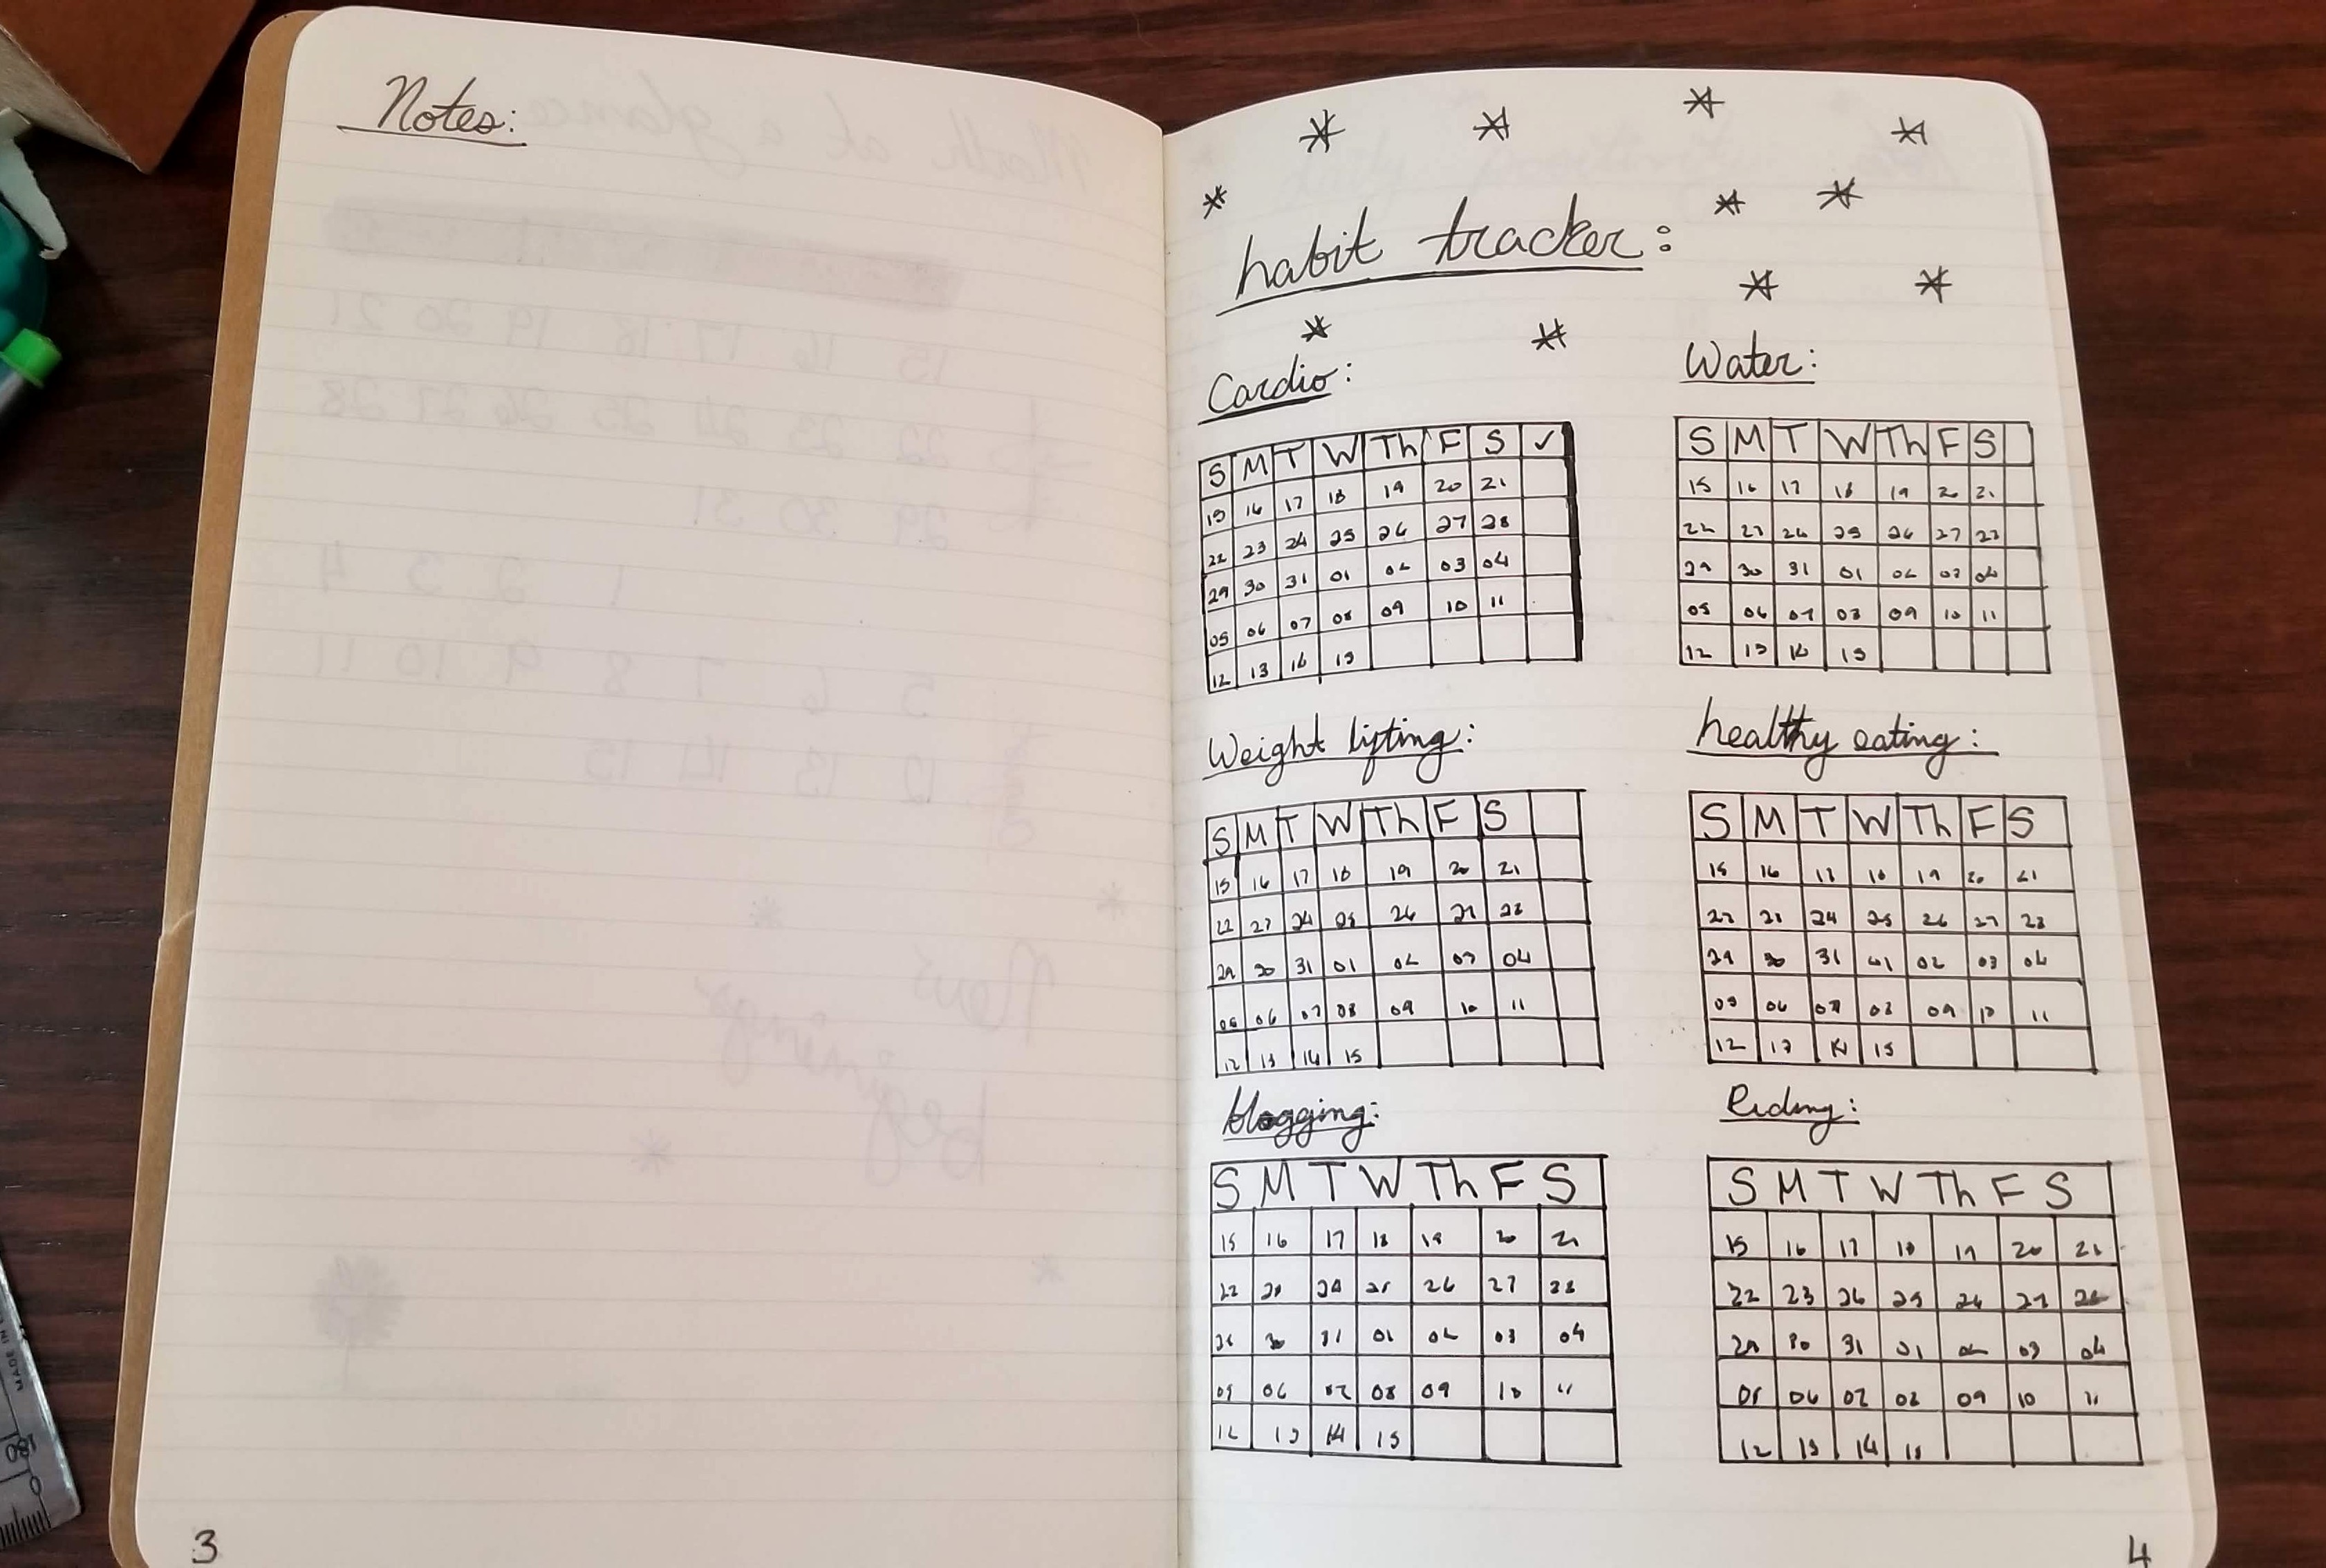 Notes:
habit tracker:
Cardio:
S M T W Th F S ✓
15 16 17 18 19 20 21
22 23 24 25 26 27 28
29 30 31 01 02 03 04
05 06 07 08 09 10 11
12 13 14 15
Water:
S M T W Th F S
15 16 17 18 19 20 21
22 23 24 25 26 27 28
29 30 31 01 02 03 04
05 06 07 08 09 10 11
12 13 14 15
Weight lifting:
S M T W Th F S
15 16 17 18 19 20 21
22 23 24 25 26 27 28
29 30 31 01 02 03 04
05 06 07 08 09 10 11
12 13 14 15
healthy eating:
S M T W Th F S
15 16 17 18 19 20 21
22 23 24 25 26 27 28
29 30 31 01 02 03 04
05 06 07 08 09 10 11
12 13 14 15
blogging:
S M T W Th F S
15 16 17 18 19 20 21
22 23 24 25 26 27 28
29 30 31 01 02 03 04
05 06 07 08 09 10 11
12 13 14 15
Riding:
S M T W Th F S
15 16 17 18 19 20 21
22 23 24 25 26 27 28
29 30 31 01 02 03 04
05 06 07 08 09 10 11
12 13 14 15
3
4